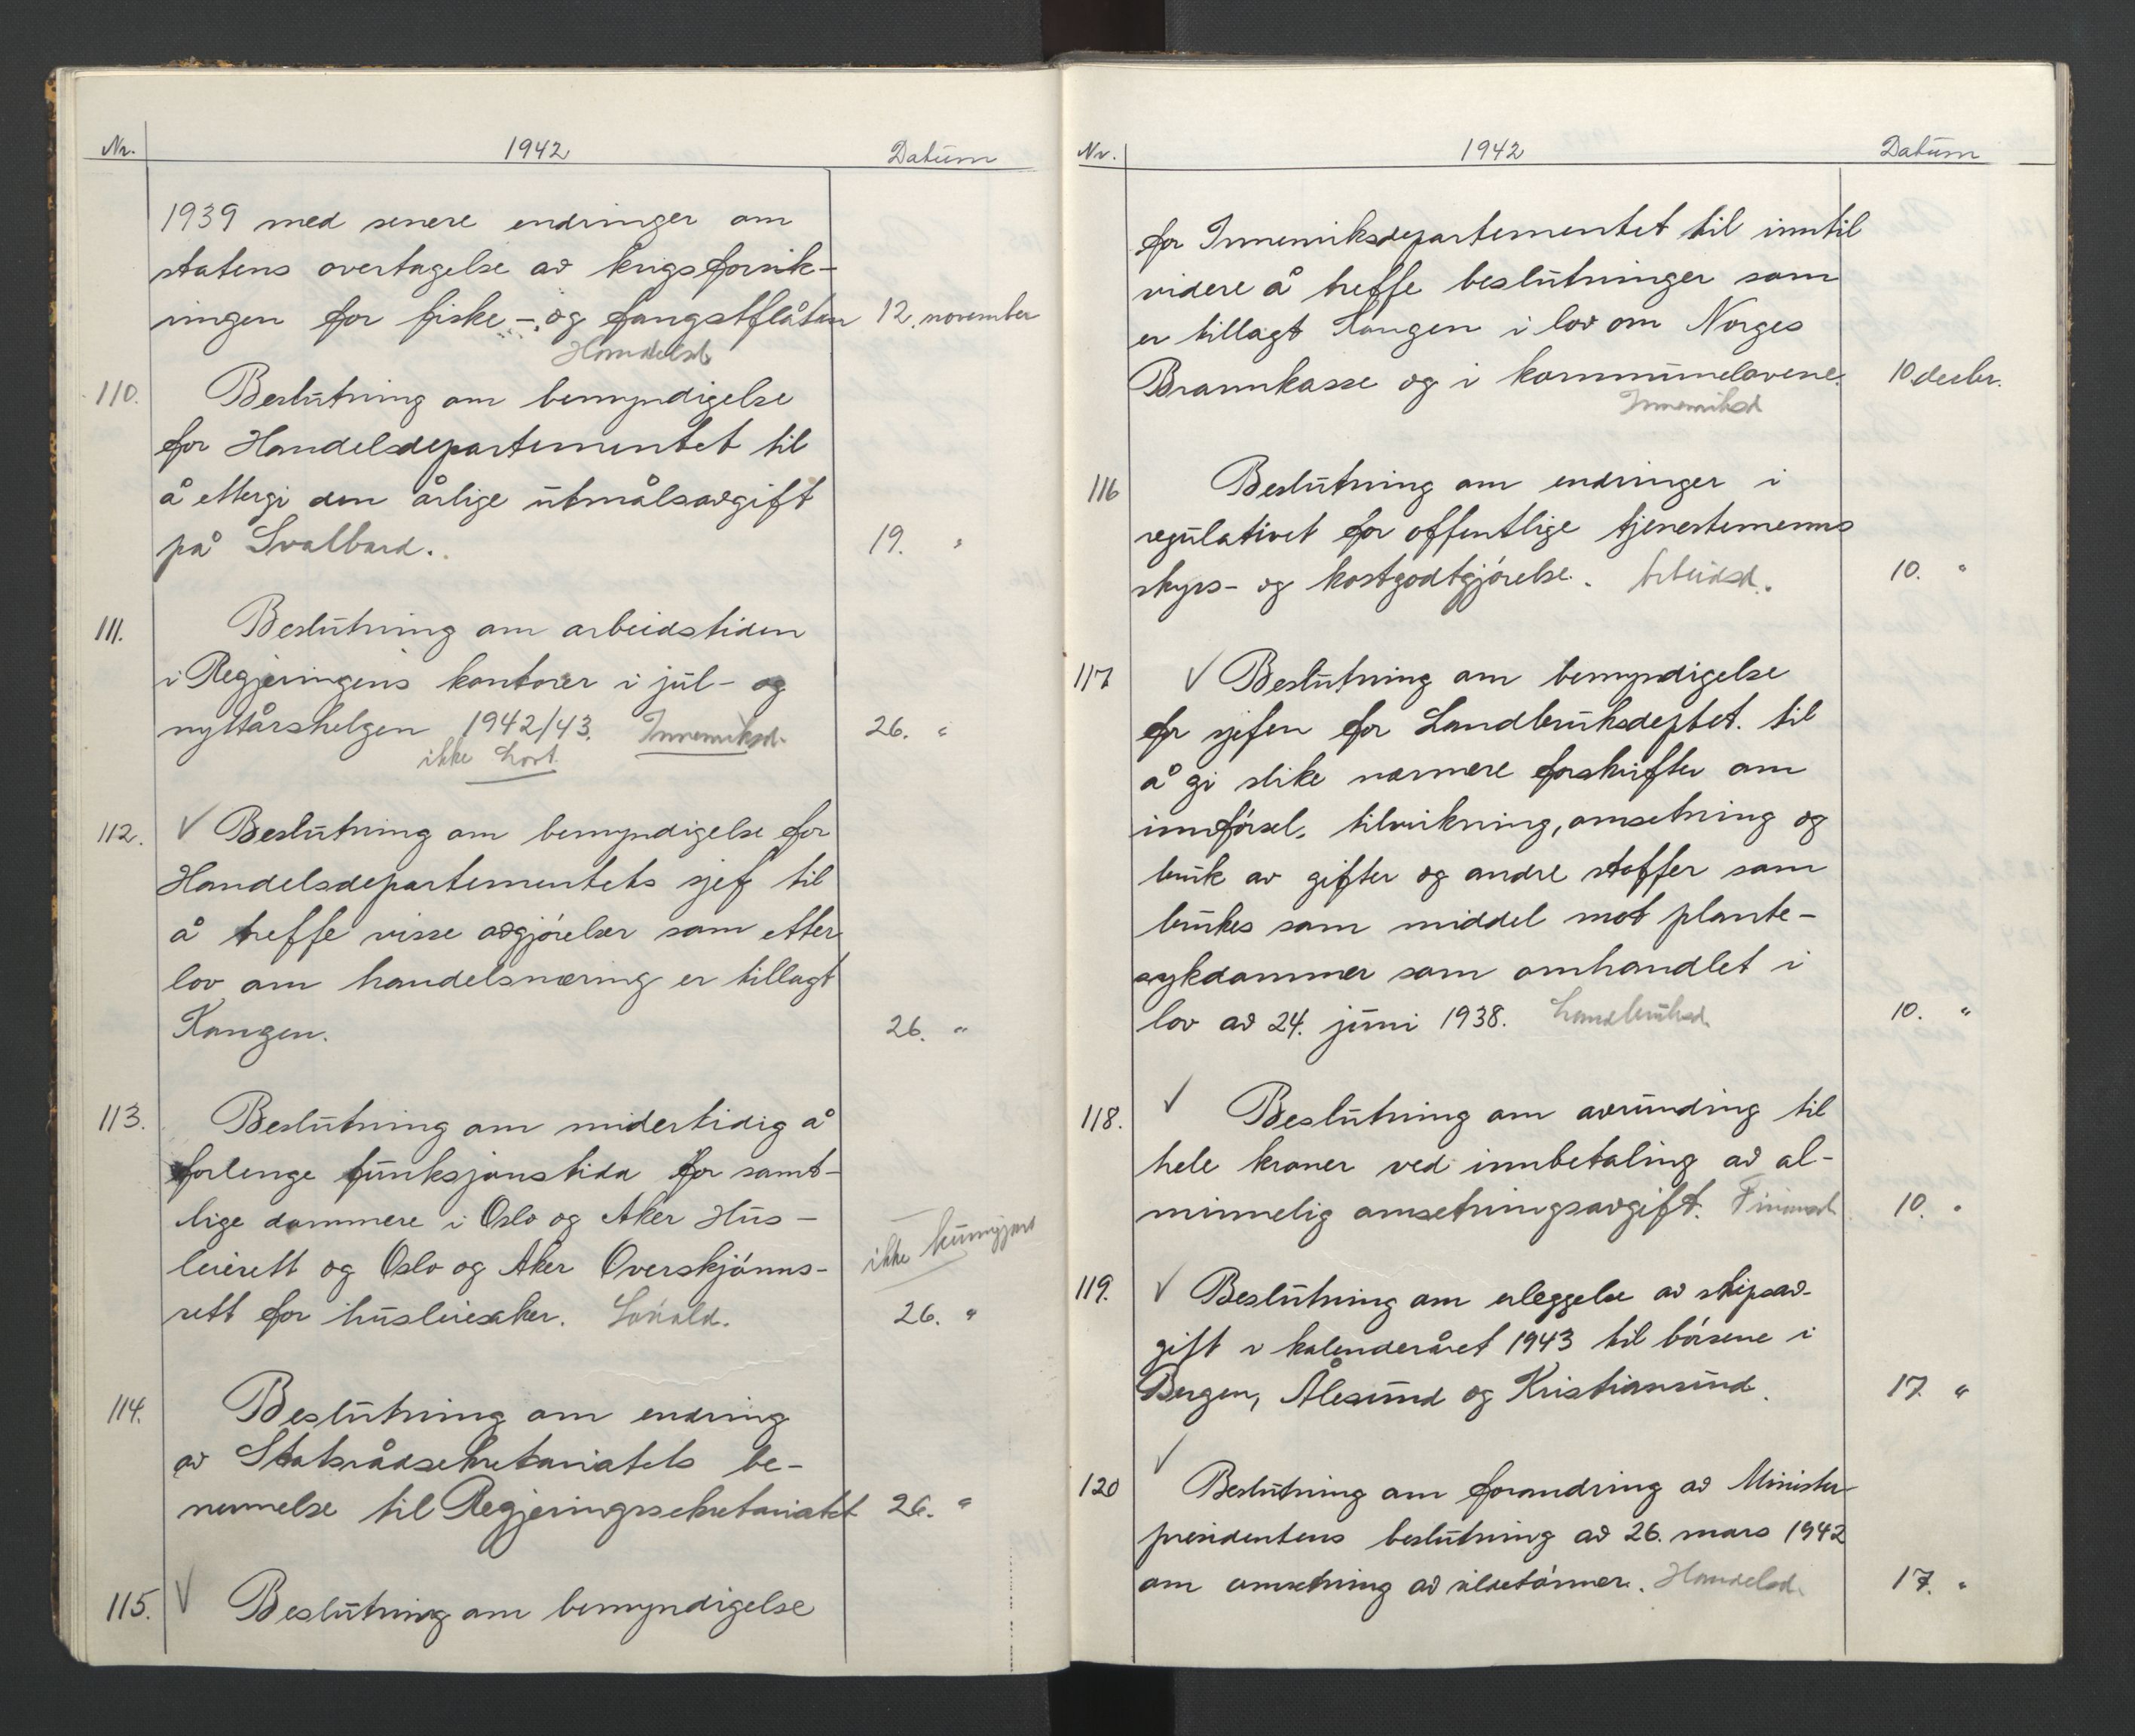 Nr. 1942 Datum
1939 med senere endringer om
statens overtagelse av krigsforsik-
ringen for fiske- og fangstflåten 12. november
Handelsd.
110. Beslutning om bemyndigelse
for Handelsdepartementet til
å ettergi den årlige utmålsavgift
på Svalbard. 19. "
111. Beslutning om arbeidstiden
i Regjeringens kontorer i jul- og
nyttårshelgen 1942/43. Innenriksd. 26. "
ikke Lovt.
112. √ Beslutning om bemyndigelse for
Handelsdepartementets sjef til
å treffe visse avgjørelser som etter
lov om handelsnæring er tillagt
Kongen. 26. "
113. Beslutning om midertidig å
forlenge funksjonstida for samt-
lige dommere i Oslo og Aker Hus-
leierett og Oslo og Aker Overskjønns- ikke kunngjort
rett for husleiesaker. Sosiald. 26. "
114. Beslutning om endring
av Statsrådsekretariatets be-
nevnelse til Regjeringssekretariatet 26. "
115. √ Beslutning om bemyndigelse
Nr. 1942 Datum
for Innenriksdepartementet til inntil
videre å treffe beslutninger som
er tillagt Kongen i lov om Norges
Brannkasse og i kommunelovene. 10. desbr.
Innenriksd
116 Beslutning om endringer i
regulativet for offentlige tjenestemenns
skyss- og kostgodtgjørelse. Arbeidsd. 10. "
117 √ Beslutning om bemyndigelse
for sjefen for Landbruksdeptet. til
å gi slike nærmere forskrifter om
innførsel, tilvirkning, omsetning og
bruk av gifter og andre stoffer som
brukes som middel mot plante-
sykdommer som omhandlet i
lov av 24. juni 1938. Landbruksd. 10. "
118. √ Beslutning om avrunding til
hele kroner ved innbetaling av al-
minnelig omsetningsavgift. Finansd. 10. "
119. √ Beslutning om erleggelse av skipsav-
gift i kalenderåret 1943 til børsene i
Bergen, Ålesund og Kristiansund. 17. "
√
120 Beslutning om forandring av Minister-
presidentens beslutning av 26. mars 1942
om omsetning av sildetønner. Handelsd. 17. "